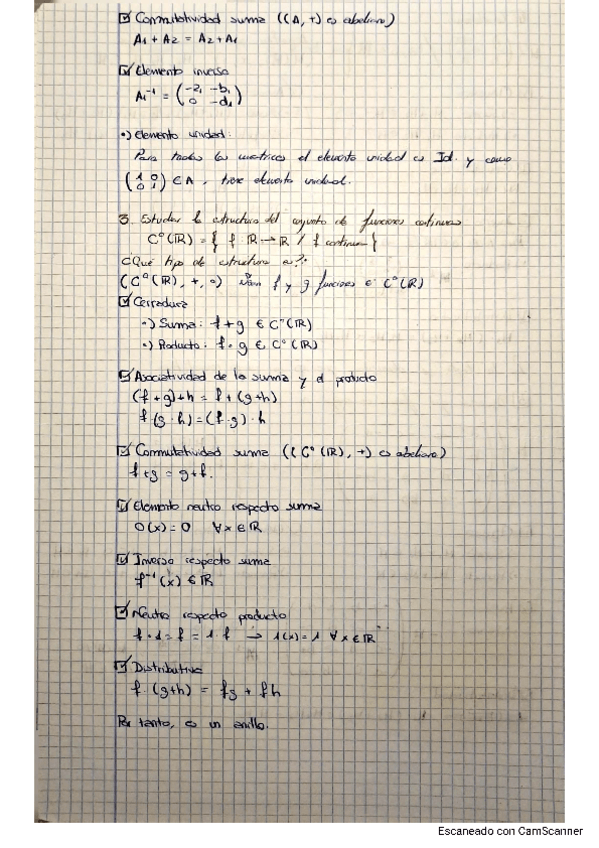 ☑ Conmutatividad suma ((A, +) es abeliano)
A₁ + A₂ = A₂ + A₁
☑ Elemento inverso
A₁⁻¹ = (-a₁ -b₁
0 -d₁)
•) Elemento unidad:
Para todas las matrices el elemento unidad es Id. y como
(1 0
0 1) ∈ A, tiene elemento unidad.
3. Estudiar la estructura del conjunto de funciones continuas
C⁰(ℝ) = { f: ℝ → ℝ / f continua }
¿Qué tipo de estructura es?:
(C⁰(ℝ), +, ∘) Sean f y g funciones ∈ C⁰(ℝ)
☑ Cerradura
•) Suma: f + g ∈ C⁰(ℝ)
•) Producto: f · g ∈ C⁰(ℝ)
☑ Asociatividad de la suma y el producto
(f + g) + h = f + (g + h)
f (g · h) = (f · g) · h
☑ Conmutatividad suma ((C⁰(ℝ), +) es abeliano)
f + g = g + f.
☑ Elemento neutro respecto suma
0(x) = 0 ∀x ∈ ℝ
☑ Inverso respecto suma
f⁻¹(x) ∈ ℝ
☑ Neutro respecto producto
f · 1 = f = 1 · f → 1(x) = 1 ∀x ∈ ℝ
☑ Distributiva
f · (g+h) = fg + fh
Por tanto, es un anillo.
Escaneado con CamScanner